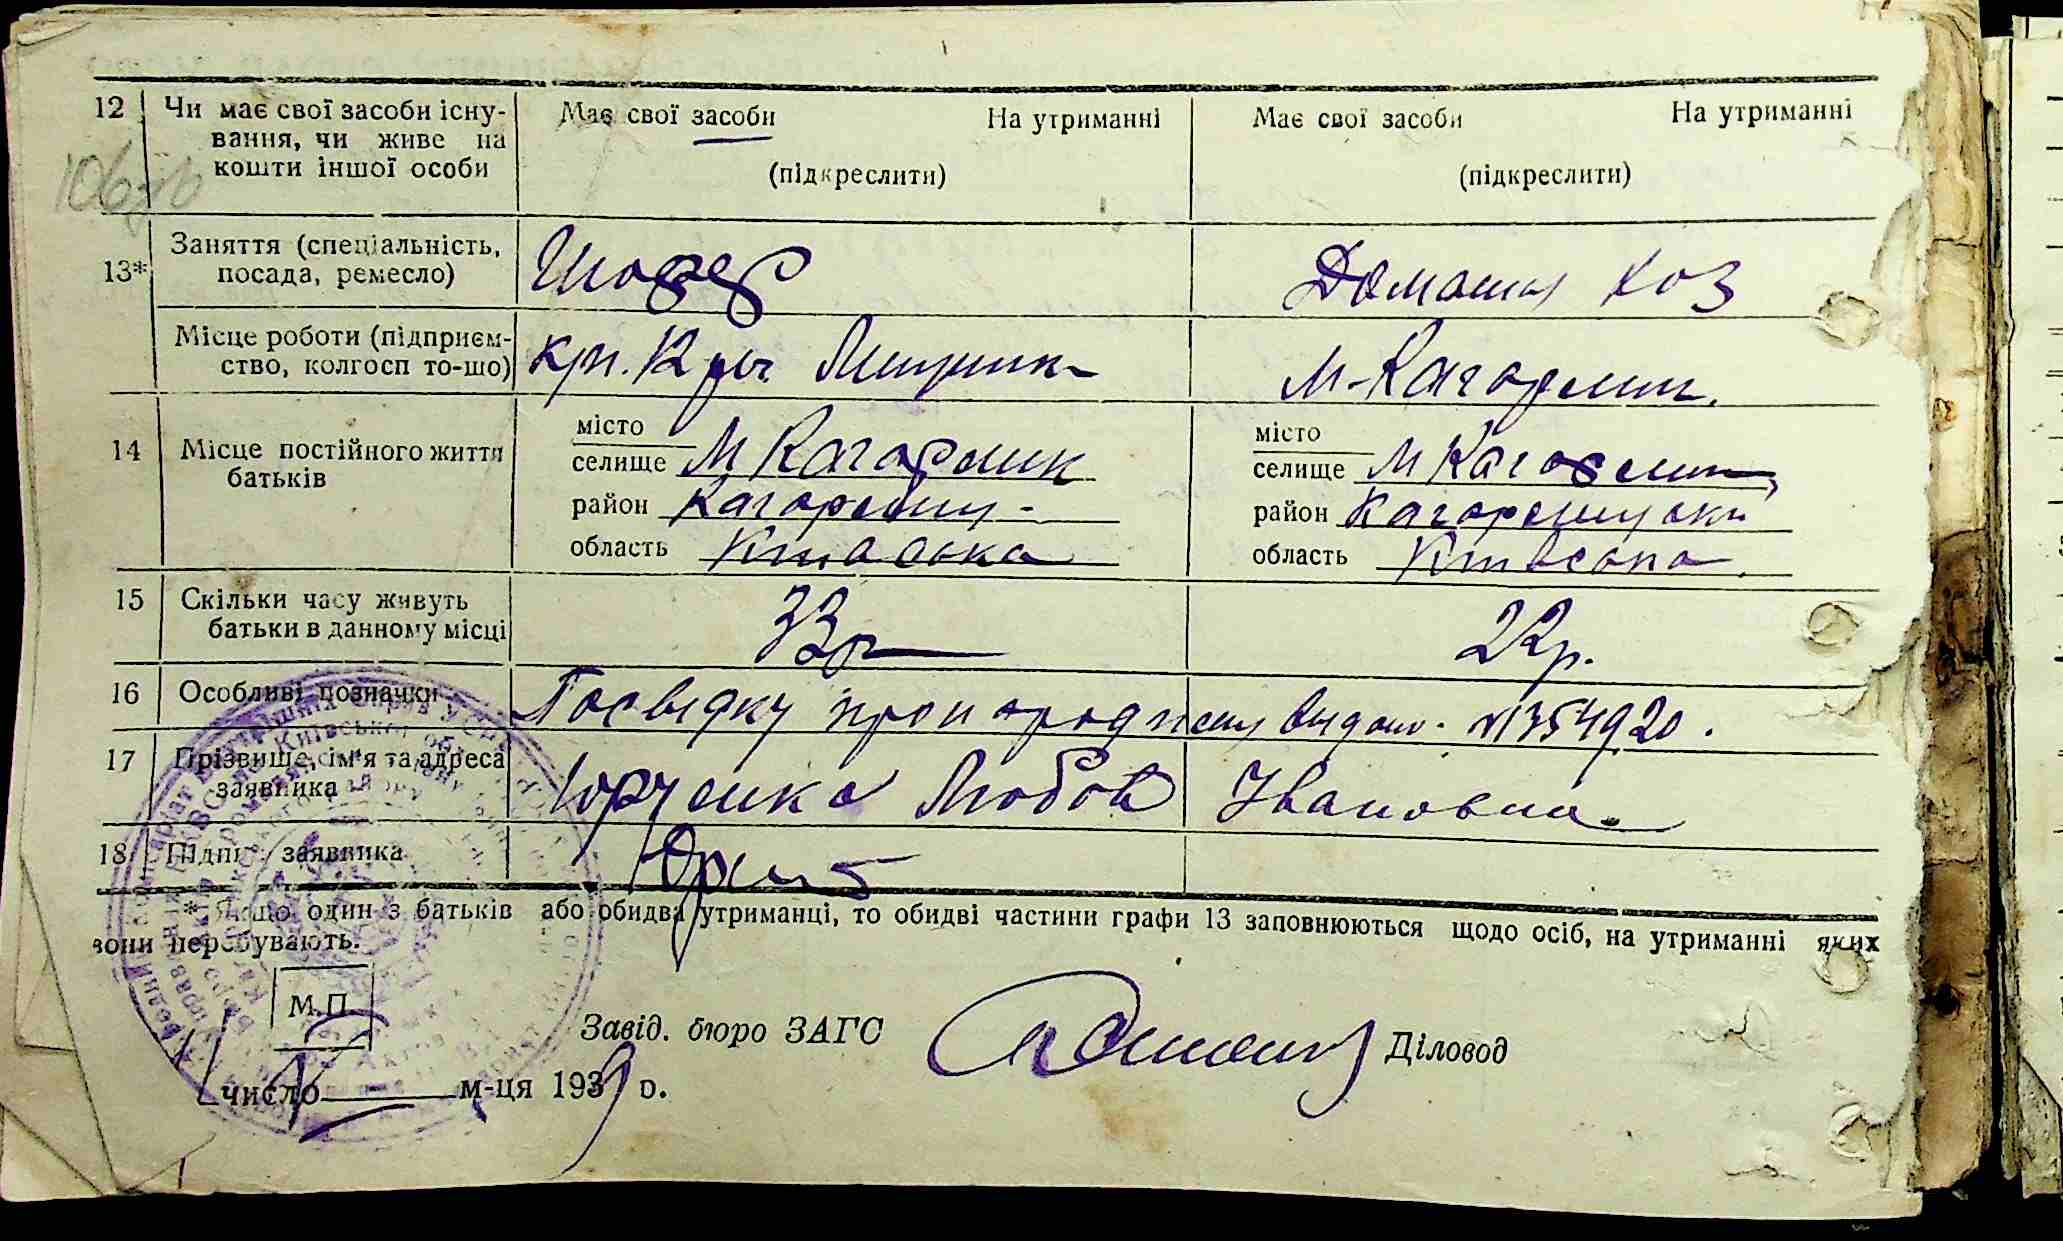 12 Чи має свої засоби існу- Має свої засоби На утриманні Має свої засоби На утриманні
вання, чи живе на
кошти іншої особи (підкреслити) (підкреслити)
106зв
Заняття (спеціальність, Шофер Домашн хоз
13* посада, ремесло)
Місце роботи (підприєм- м-Кагарлик.
ство, колгосп то-що)
14 Місце постійного життя батьків
місто місто
селище М Кагарлик селище М Кагарлик
район Кагарлиц- район Кагарлицьки
область Київська область Київська
15 Скільки часу живуть 33р 22р.
батьки в данному місці
16 Особливі позначки Посвідку про народжену видано. №354920.
17 Прізвище, ім'я та адреса Юрченко Любов Ивановна.
заявника
18 Підпис заявника
* Якщо один з батьків або обидва утриманці, то обидві частини графи 13 заповнюються щодо осіб, на утриманні яких
вони перебувають.
М.П
Завід. бюро ЗАГС Діловод
число м-ця 1939 р.